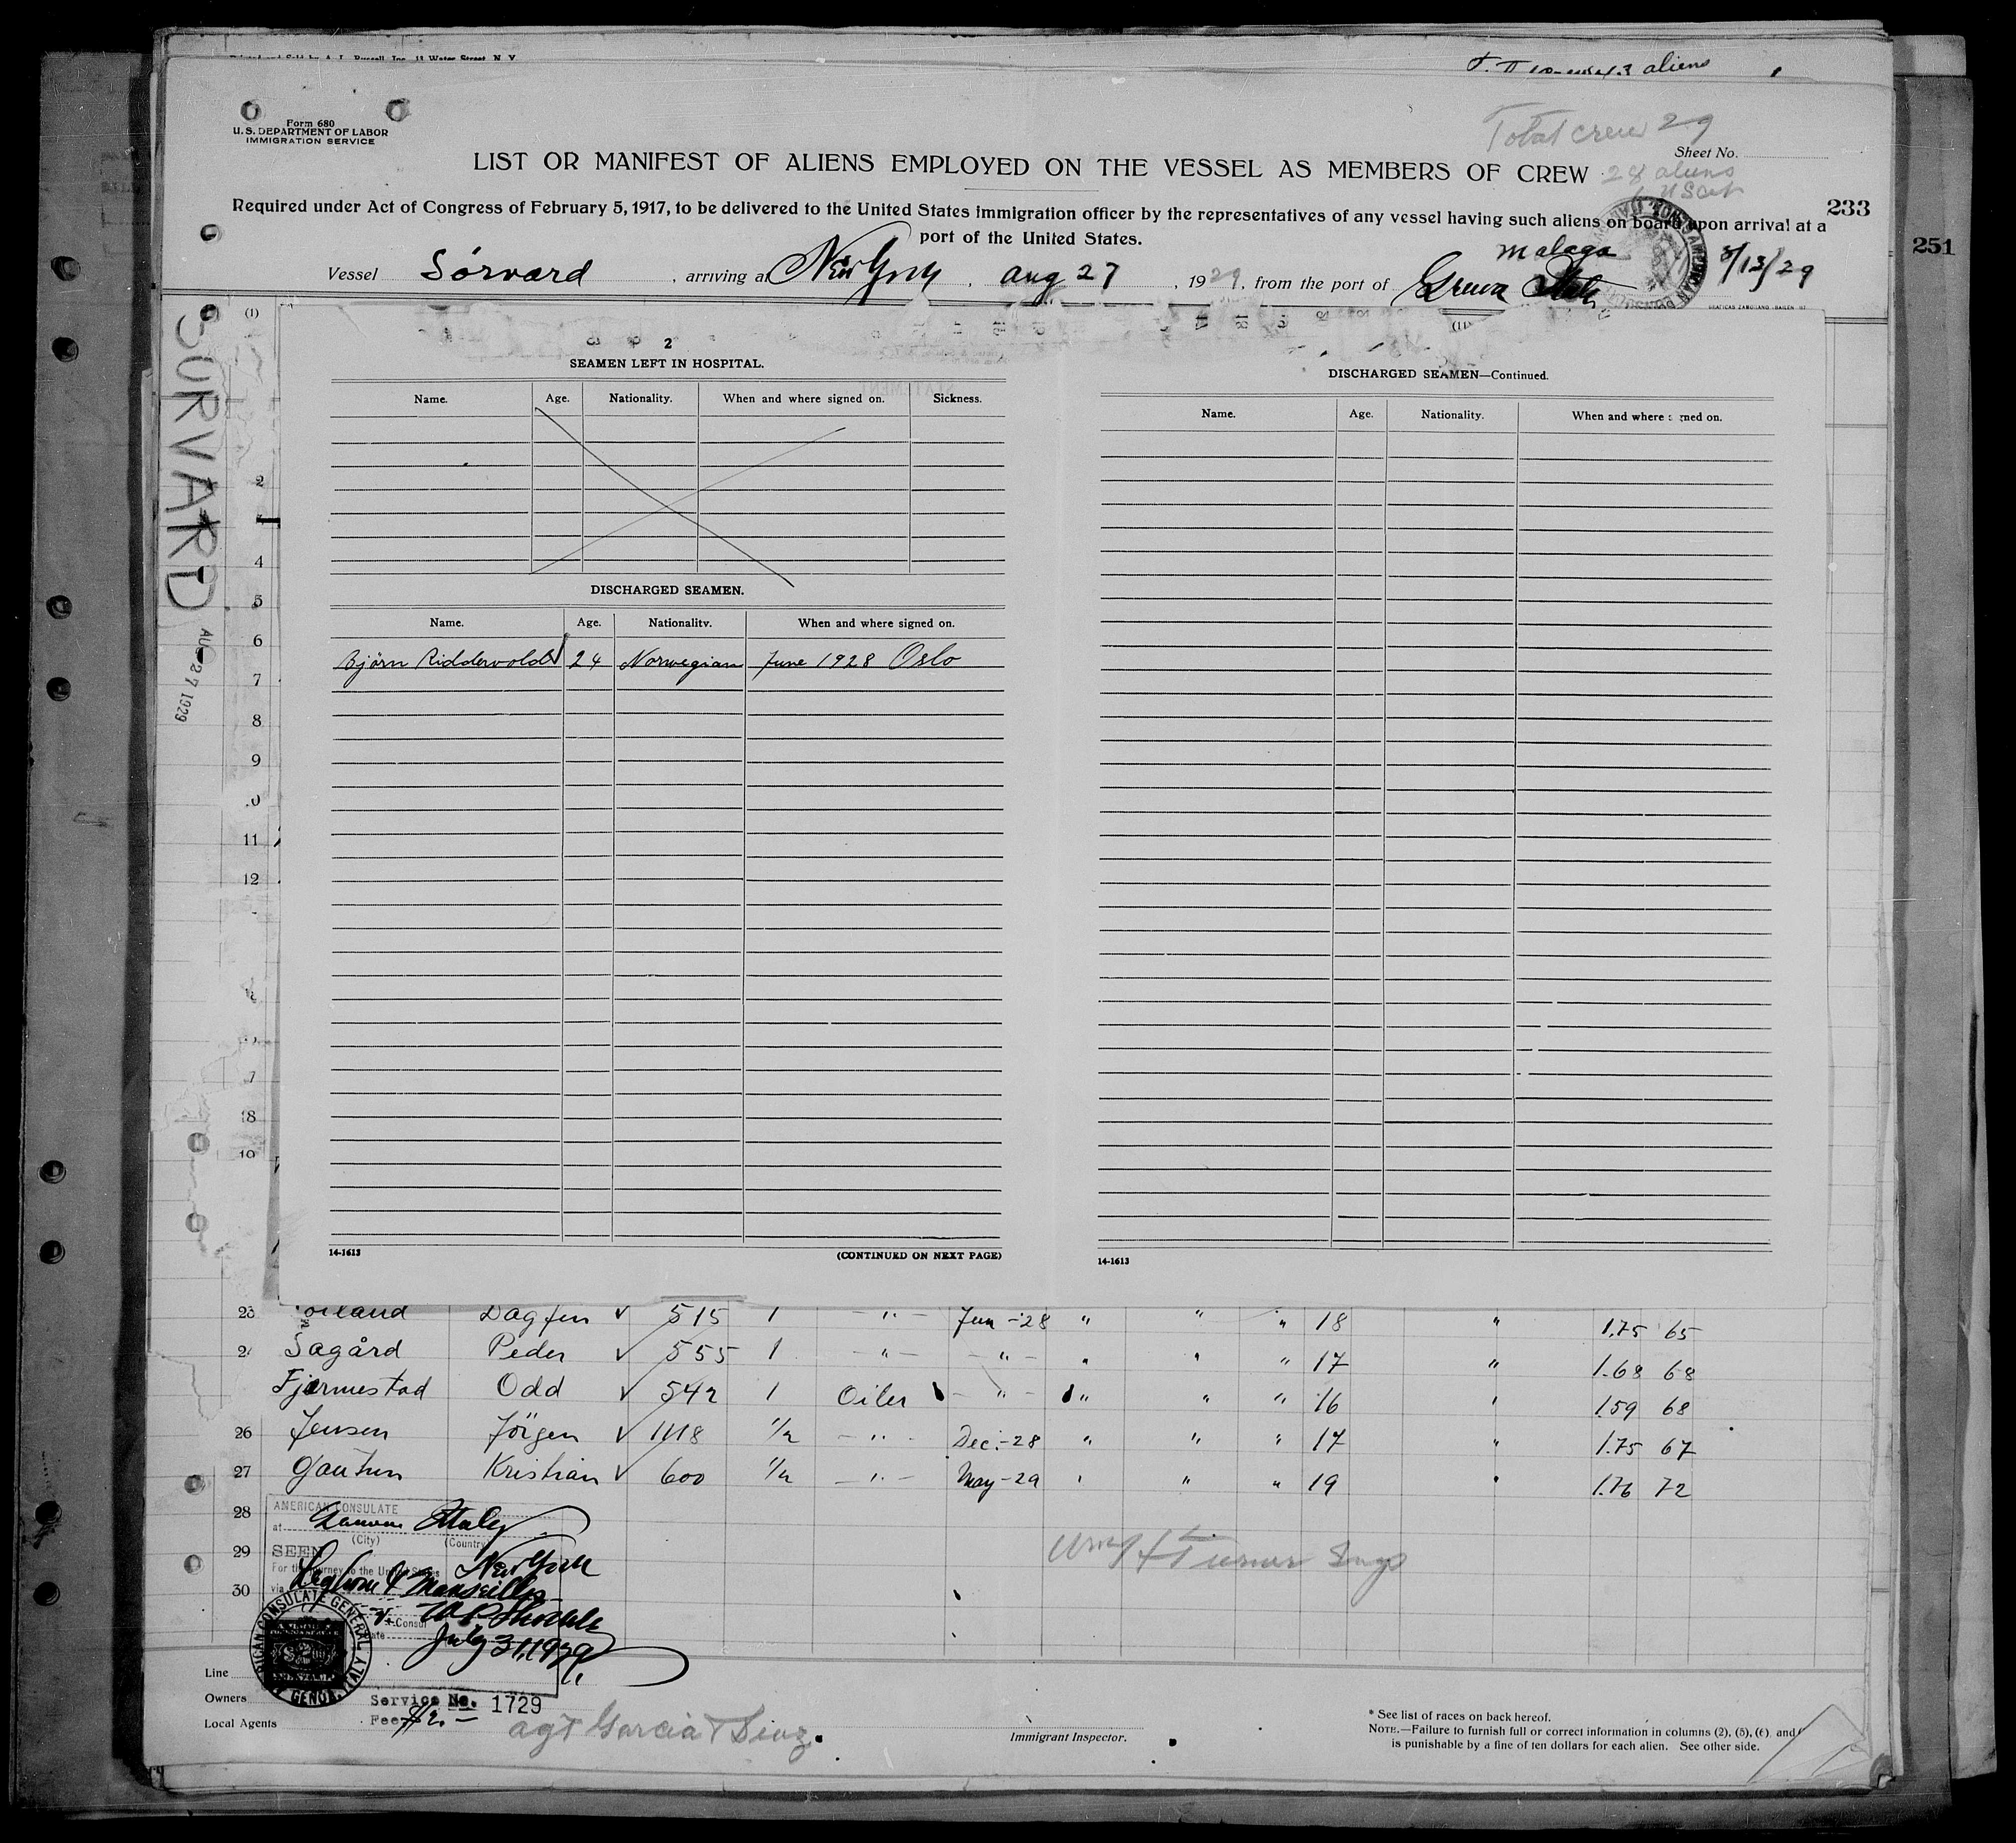 aliens
Form 680
U. S. DEPARTMENT OF LABOR
IMMIGRATION SERVICE
Total crew 29
Sheet No.
LIST OR MANIFEST OF ALIENS EMPLOYED ON THE VESSEL AS MEMBERS OF CREW
28 aliens
233
Required under Act of Congress of February 5, 1917, to be delivered to the United States immigration officer by the representatives of any vessel having such aliens on board upon arrival at a
port of the United States.
251
Malaga
Vessel Sörvard, arriving at New York, Aug 27, 1929, from the port of Genoa 8/13/29
(1)
(11)
SORVARD
AUG 27 1929
2
SEAMEN LEFT IN HOSPITAL.
Name. Age. Nationality. When and where signed on. Sickness.
DISCHARGED SEAMEN.
Name. Age. Nationality. When and where signed on.
Björn Riddervold 24 Norwegian June 1928 Oslo
14-1613 (CONTINUED ON NEXT PAGE)
DISCHARGED SEAMEN—Continued.
Name. Age. Nationality. When and where signed on.
14-1613
2
4
5
6
7
8
9
11
12
18
23 Dagfin ✓ 515 1 — " — Jun -28 " " " 18 " 1.75 65
Sagård Peder ✓ 555 1 — " — — " — " " " 17 " 1.68 68
Fjermestad Odd ✓ 542 1 Oiler — " — " " " 16 " 1.59 68
26 Jensen Jörgen ✓ 1118 1/2 — " — Dec.-28 " " " 17 " 1.75 67
27 Gautun Kristian ✓ 600 1/2 — " — May-29 " " " 19 " 1.76 72
28
29
30
AMERICAN CONSULATE
at Genoa Italy
(City) (Country)
SEEN
For the journey to the United States New York
via Leghorn & Marseilles
Consul
Date July 31, 1929
AMERICAN CONSULATE GENERAL
GENOA, ITALY
Line
Owners
Local Agents
Service No. 1729
Fee $2.—
agt Garcia & Diaz.
Immigrant Inspector.
* See list of races on back hereof.
NOTE.—Failure to furnish full or correct information in columns (2), (5), (6), and
is punishable by a fine of ten dollars for each alien. See other side.